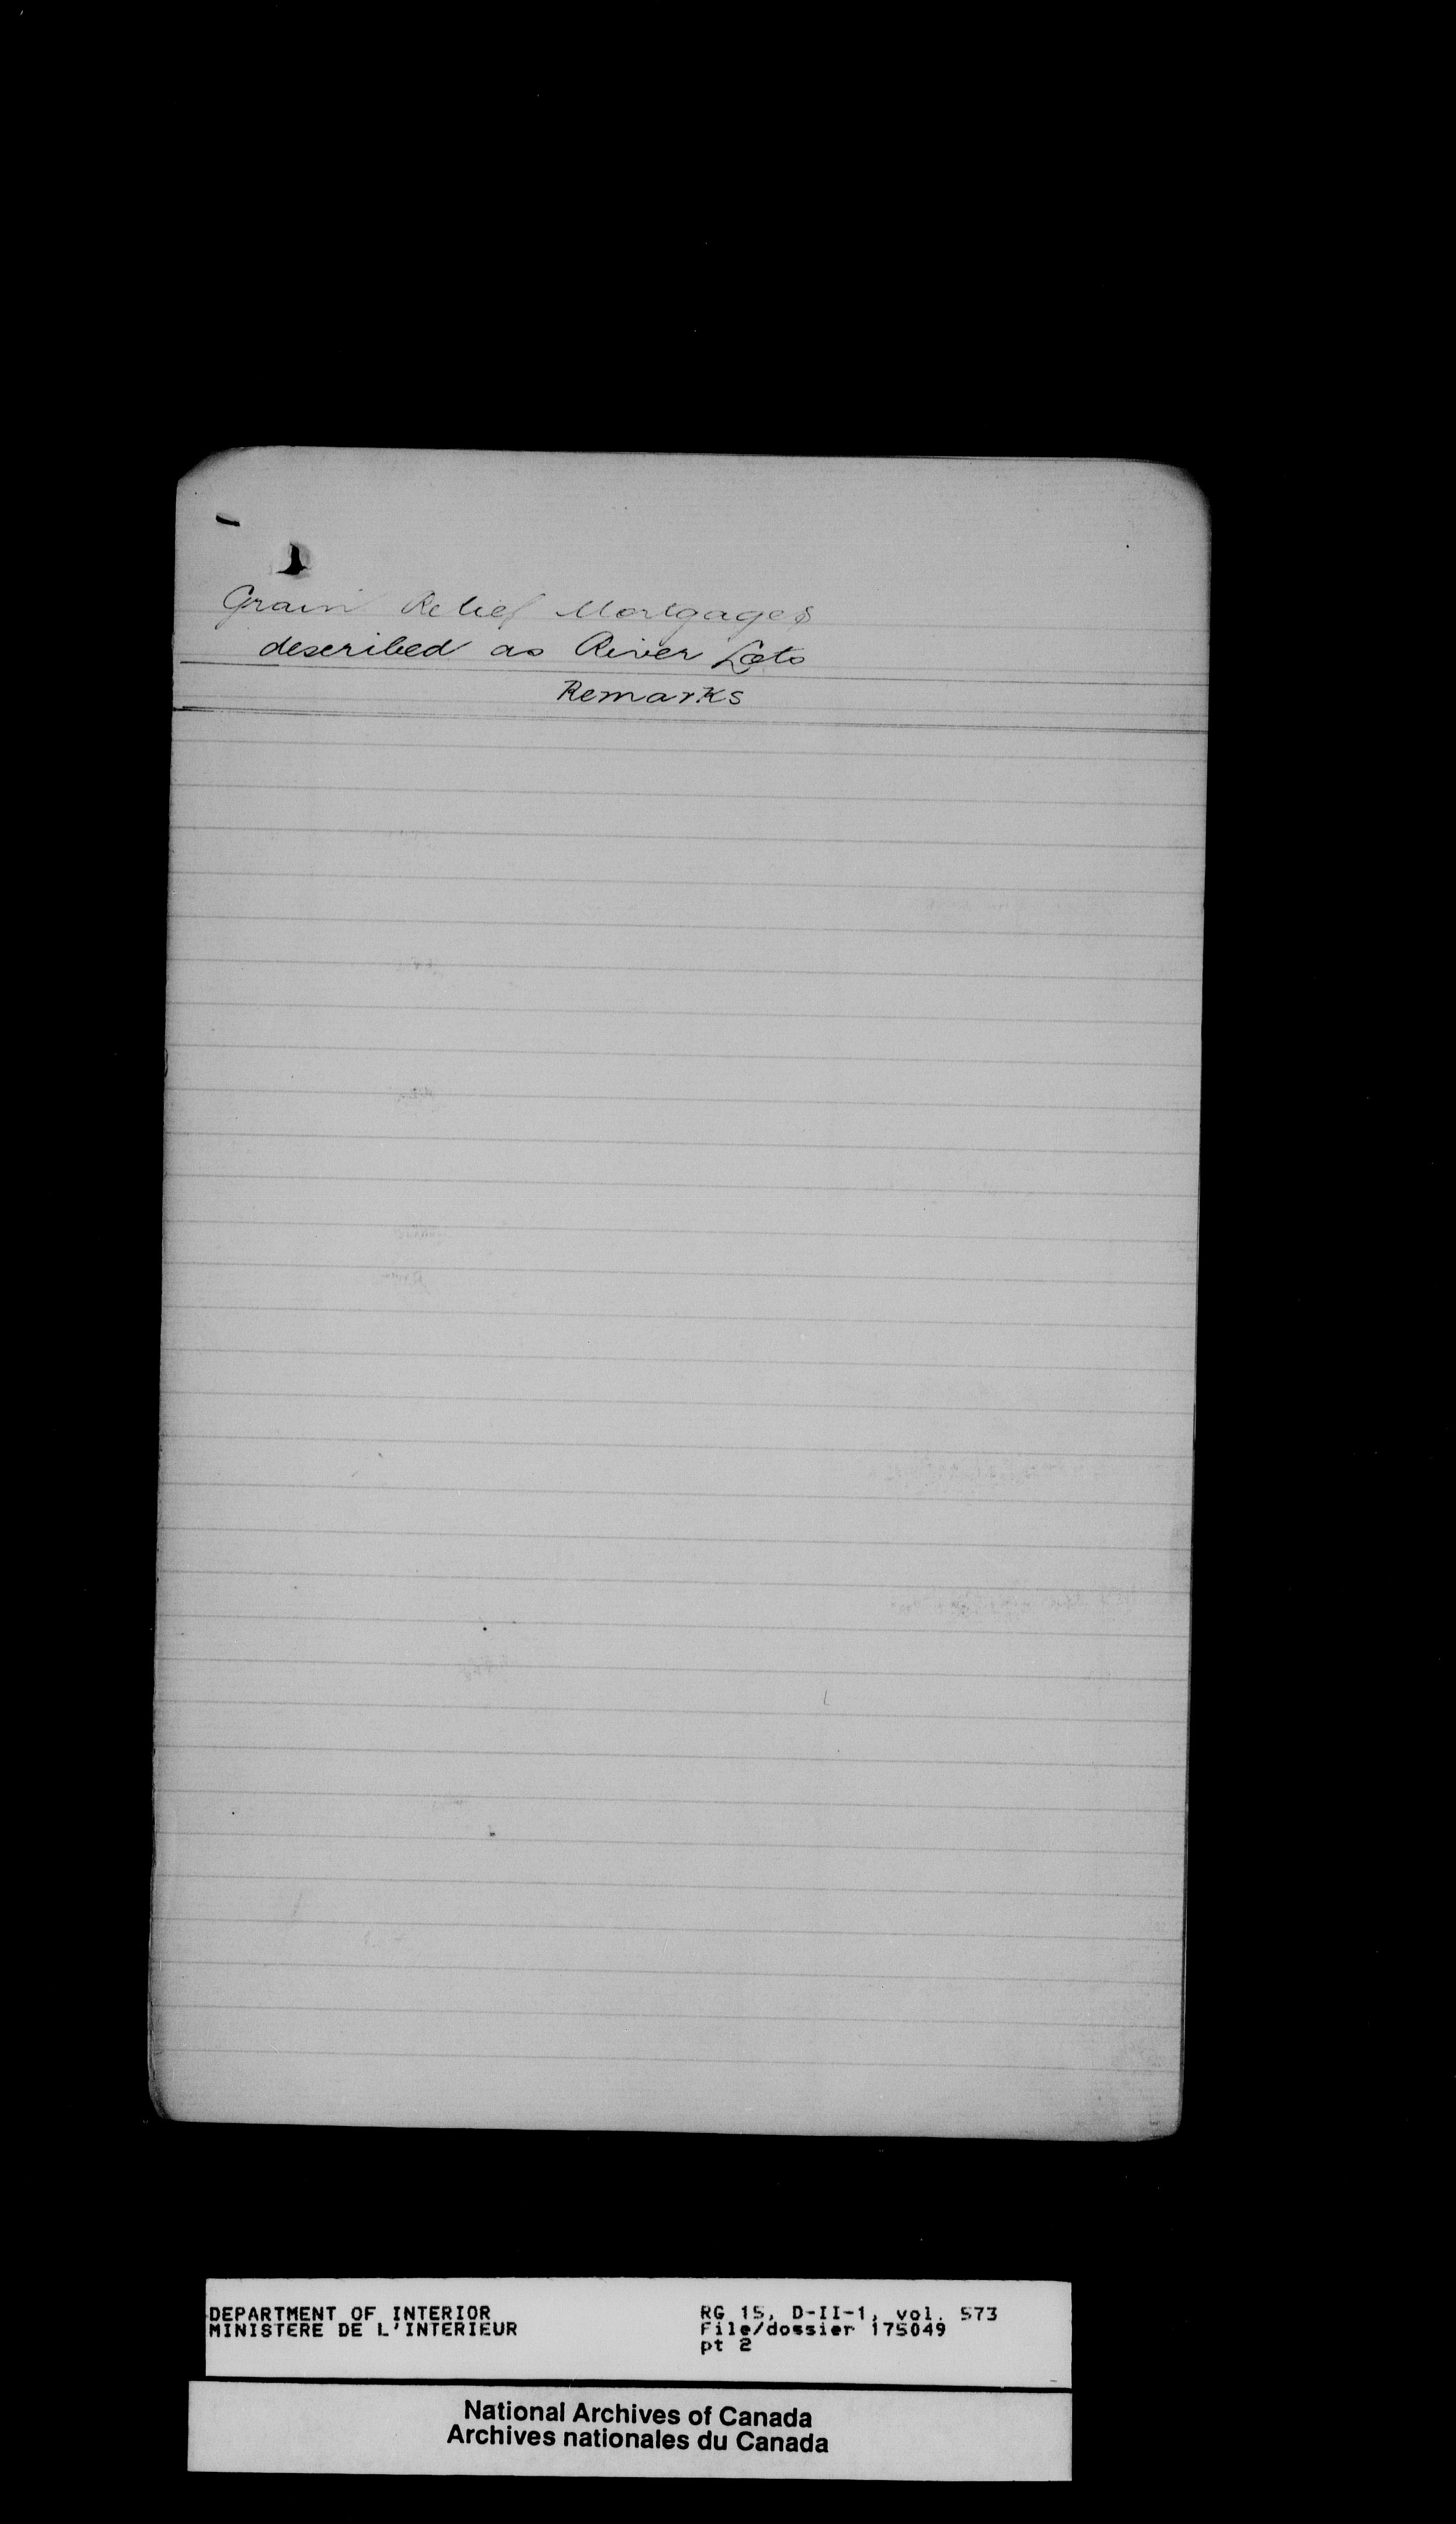 Grain Relief Mortgages
described as River Lots
Remarks
DEPARTMENT OF INTERIOR
MINISTERE DE L'INTERIEUR
RG 15, D-II-1, vol. 573
File/dossier 175049
pt 2
National Archives of Canada
Archives nationales du Canada